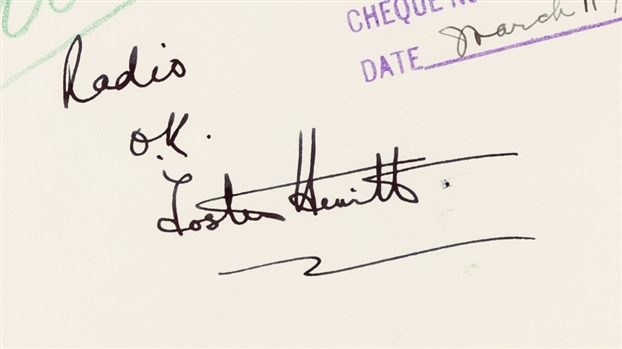 CHEQUE NO
DATE March 11
Radio
O.K.
Foster Hewitt